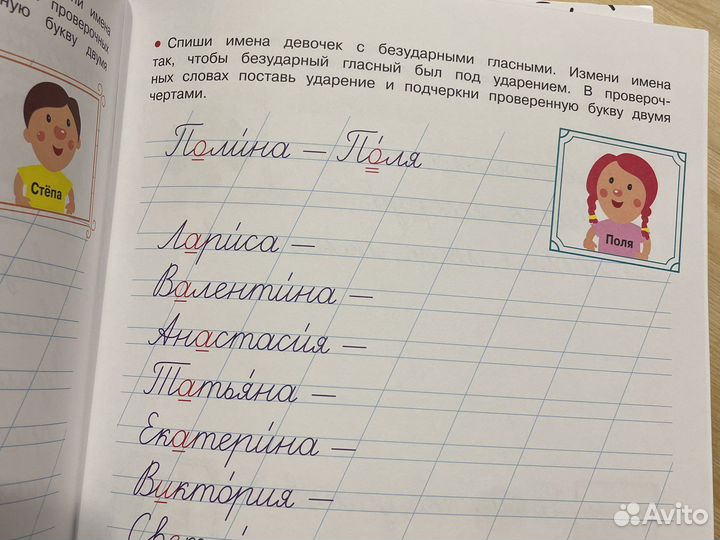 имена
проверочных
букву двумя
Стёпа
• Спиши имена девочек с безударными гласными. Измени имена
так, чтобы безударный гласный был под ударением. В провероч-
ных словах поставь ударение и подчеркни проверенную букву двумя
чертами.
Поли́на — По́ля
Поля
Лари́са —
Валенти́на —
Анастаси́я —
Татья́на —
Екатери́на —
Викто́рия —
Avito